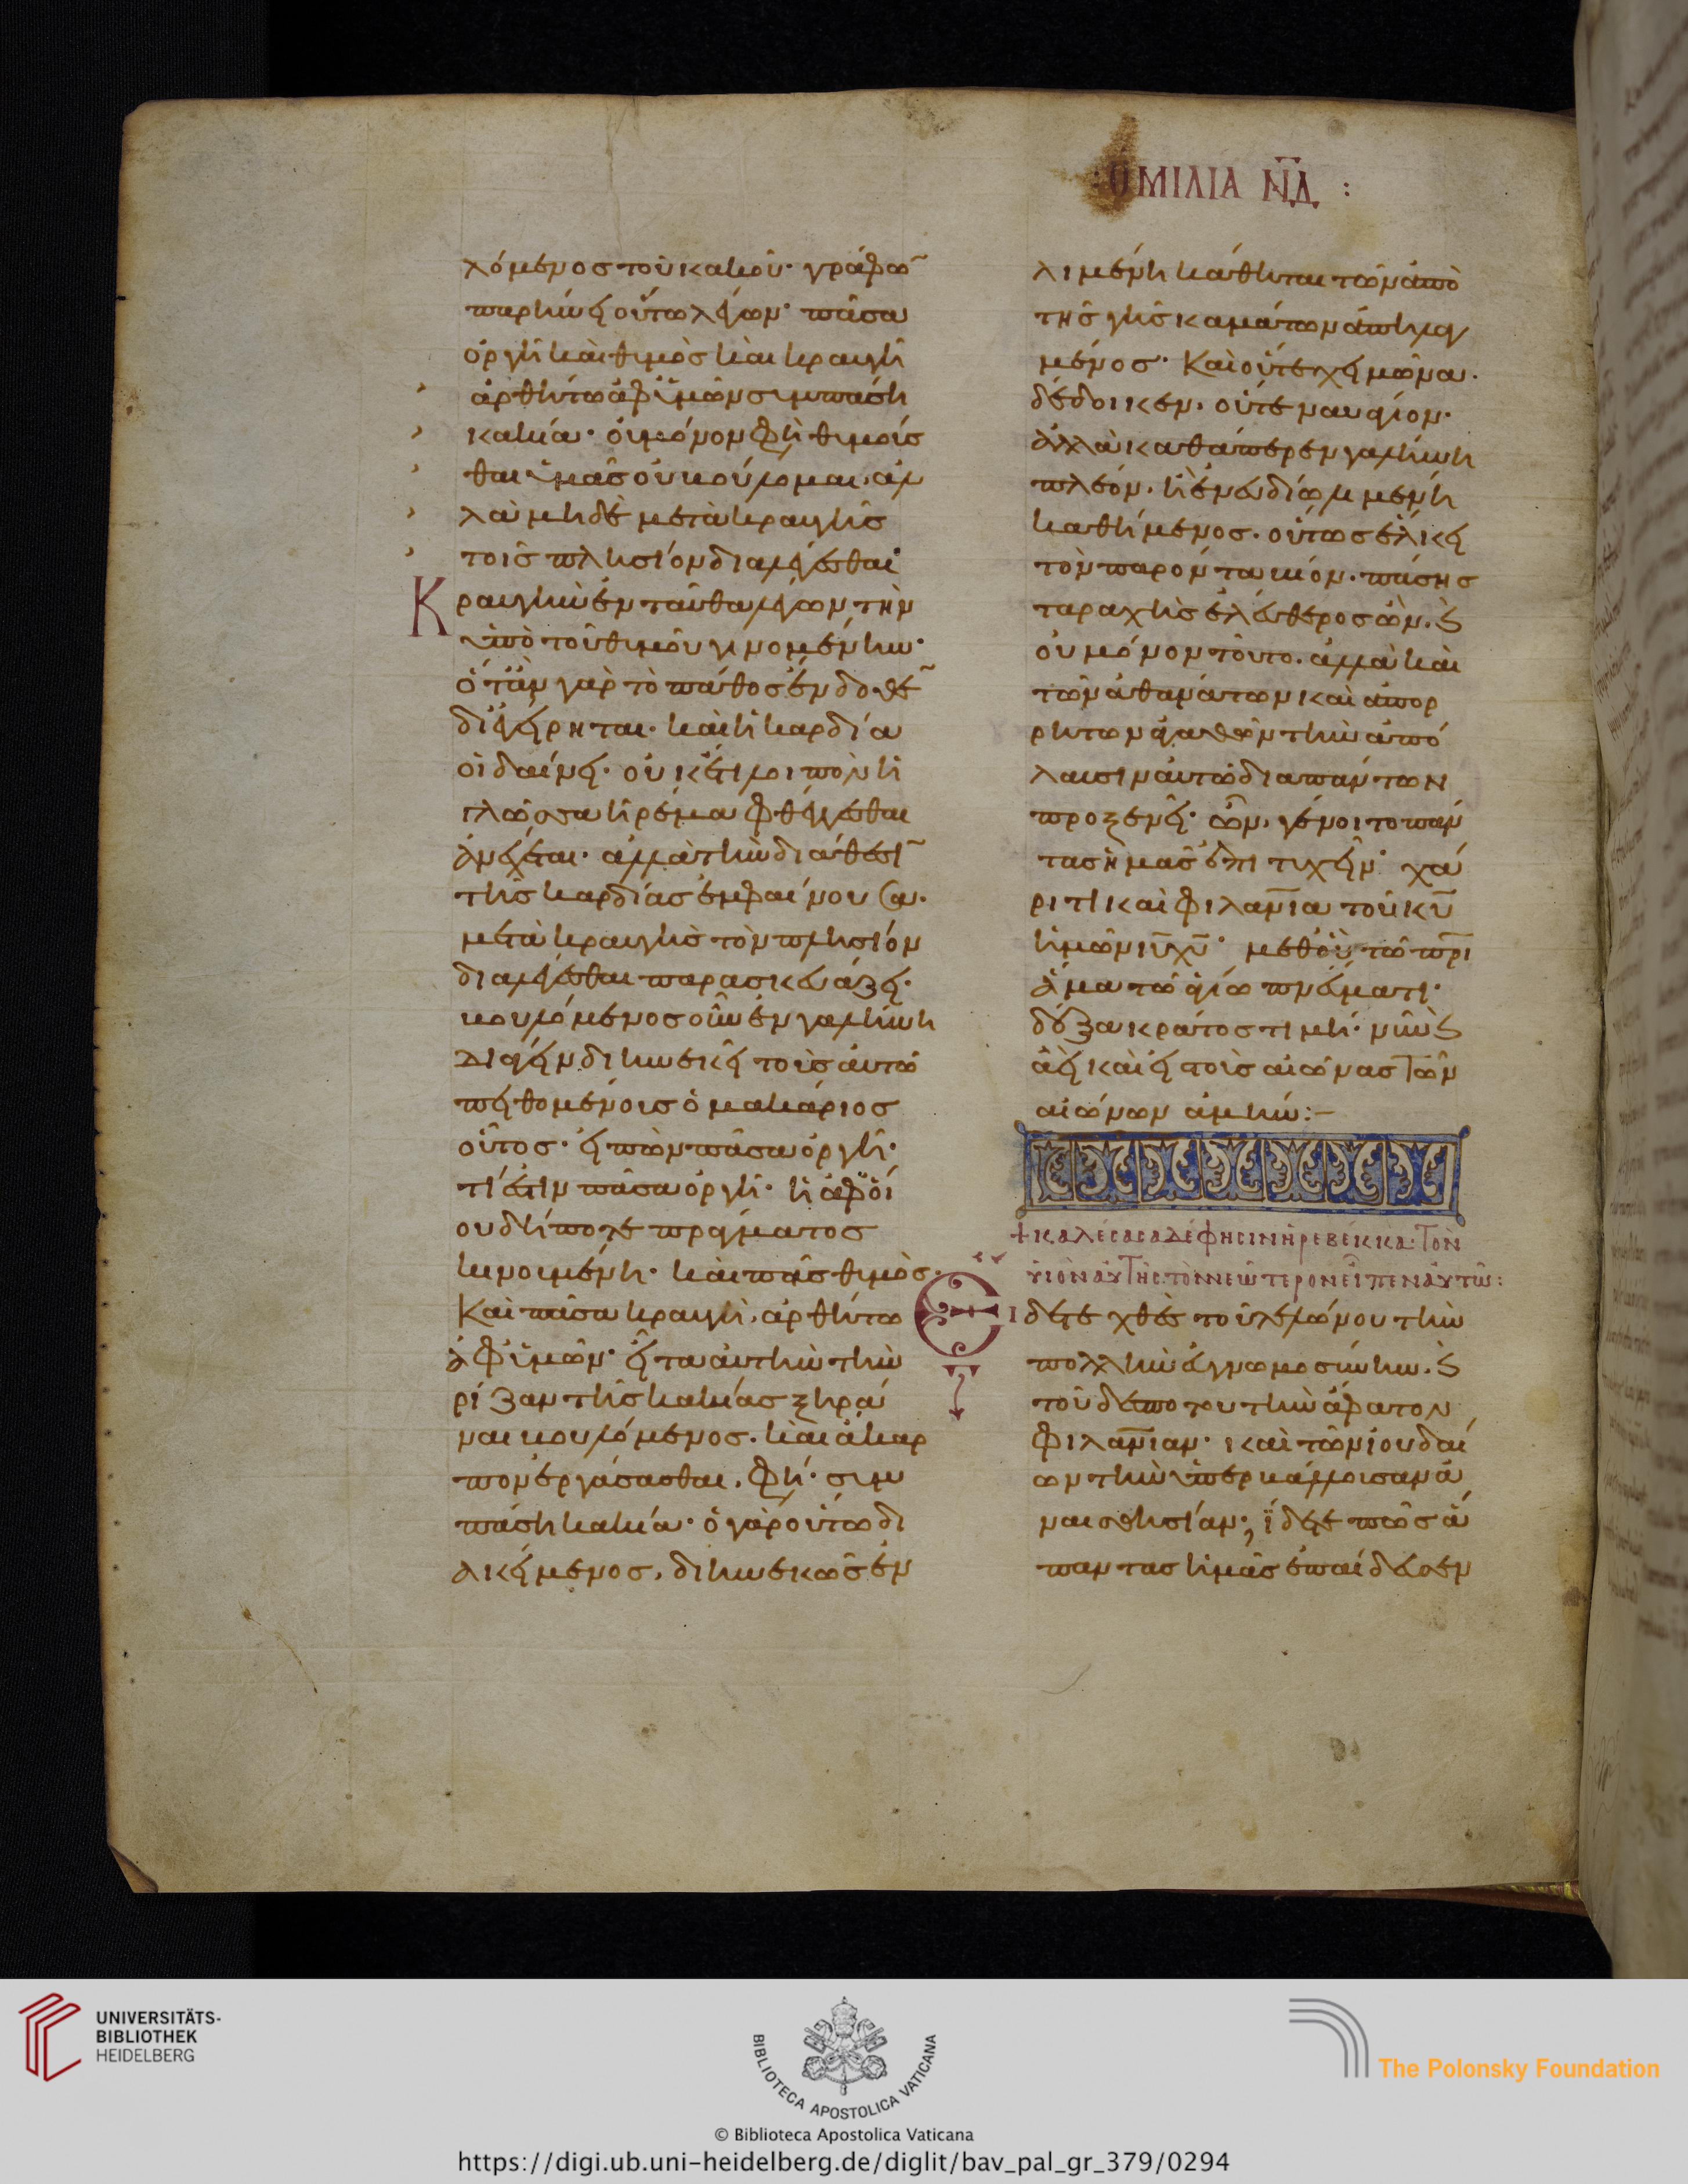 ὉΜΙΛΙΑ Ν̅Δ̅ :
λόμενος τοῦ κακοῦ· γράφῶ
παρήνει οὕτω λέγων· πᾶσα
ὀργὴ καὶ θυμὸς καὶ κραυγὴ
ἀρθήτω ἀφ' ὑμῶν σὺν πάσῃ
κακία· οὐ μόνον φὴ θυμοῦσ
θαι ὑμᾶς οὐ βούλομαι, ἀλ
λὰ μηδὲ μετὰ κραυγῆς
τοῖς πλησίον διαλέγεσθαι
Κραυγὴν ἐνταῦθα λέγων τὴν
ὑπὸ τοῦ θυμοῦ γινομένην·
ὅταν γὰρ τὸ πάθος ἔνδοθε͂
διεγείρηται· καὶ ἡ καρδία
οἰδαίνει· οὐκέτι λοιπὸν ἡ
γλῶσσα ἠρέμα φθέγγεσθαι
ἀνέχεται· ἀλλὰ τὴν διάθεσῖ
τῆς καρδίας ἐμφαίνουσα·
μετὰ κραυγῆς τὸν πλησίον
διαλέγεσθαι παρασκευάζει·
βουλόμενος οὖν ἐν γαλήνη
διάγειν διηνεκεῖ τοὺς αὐτῶ
πειθομένους ὁ μακάριος
οὗτος· εἰπὼν πᾶσα ὀργὴ·
τί ἐστιν πᾶσα ὀργὴ· ἡ ἀφ' οἱ
ουδήποτε πράγματος
κινουμένη· καὶ πᾶς θυμὸς·
Καὶ πᾶσα κραυγὴ, ἀρθήτω
ἀφ' ὑμῶν· εἶτα αὐτὴν τὴν
ρίζαν τῆς κακίας ξηρά
ναι βουλόμενος. καὶ ἄκαρ
πον ἐργάσασθαι, φὴ· σὺν
πάση κακία· ὁ γὰρ οὕτω δι
ακείμενος, διηνεκῶς ἐν
λιμένη κάθηται τῶν ἀπὸ
τῆς γῆς καμάτων ἀπηλλαγ
μένος· Καὶ οὔτε χειμῶνα·
δέδοικεν, οὔτε ναυάγιον·
ἀλλὰ καθάπερ ἐν γαλήνη
πλέον, ἢ ἐν εὐδίω λιμένη
καθήμενος. οὕτως ἕλκει
τὸν παρόντα βίον. πάσης
ταραχῆς ἐλεύθερος ὢν. ϗ
οὐ μόνον τοῦτο. ἀλλὰ καὶ
τῶν ἀθανάτων καὶ ἀπορ
ρήτων ἀγαθῶν τὴν ἀπό
λαυσιν αὐτῶ διαπαντων
προξενεῖ· ὧν, γένοιτο πάν
τας ἡμᾶς ἐπιτυχεῖν· χά
ριτι καὶ φιλαν̅ία τοῦ κ̅υ̅
ἡμῶν ι̅υ̅ χ̅υ̅· μεθ' οὗ τῶ π̅ρι
ἅμα τῶ ἁγίω πνεύματι·
δόξα κράτος τιμὴ· νῦν ϗ
ἀεὶ καὶ εἰς τοὺς αἰῶνας τῶν
αἰώνων ἀμήν:–
+ ΚΑΛΕCΑCΑ ΔΕ ΦΗCΙΝ Ἡ ΡΕΒΕΚΚΑ· ΤΟΝ
ΥἱΟΝ ΑΥΤΗC ΤΟΝ ΝΕΩΤΕΡΟΝ ΕΙΠΕΝ ΑΥΤΩ:
Εἴδετε χθὲς τοῦ τελώνου τὴν
πολλὴν εὐγνωμοσύνην. ϗ
τοῦ δεσπότου τὴν ἄφατον
φιλαν̅ίαν· καὶ τῶν ἰουδαί
ων τὴν ὑπερβάλλουσαν ἀ
ναισθησίαν; ἴδετε πῶς ἅ
παντας ἡμᾶς ἐπαίδευσεν
UNIVERSITÄTS-
BIBLIOTHEK
HEIDELBERG
BIBLIOTECA APOSTOLICA VATICANA
The Polonsky Foundation
© Biblioteca Apostolica Vaticana
https://digi.ub.uni-heidelberg.de/diglit/bav_pal_gr_379/0294